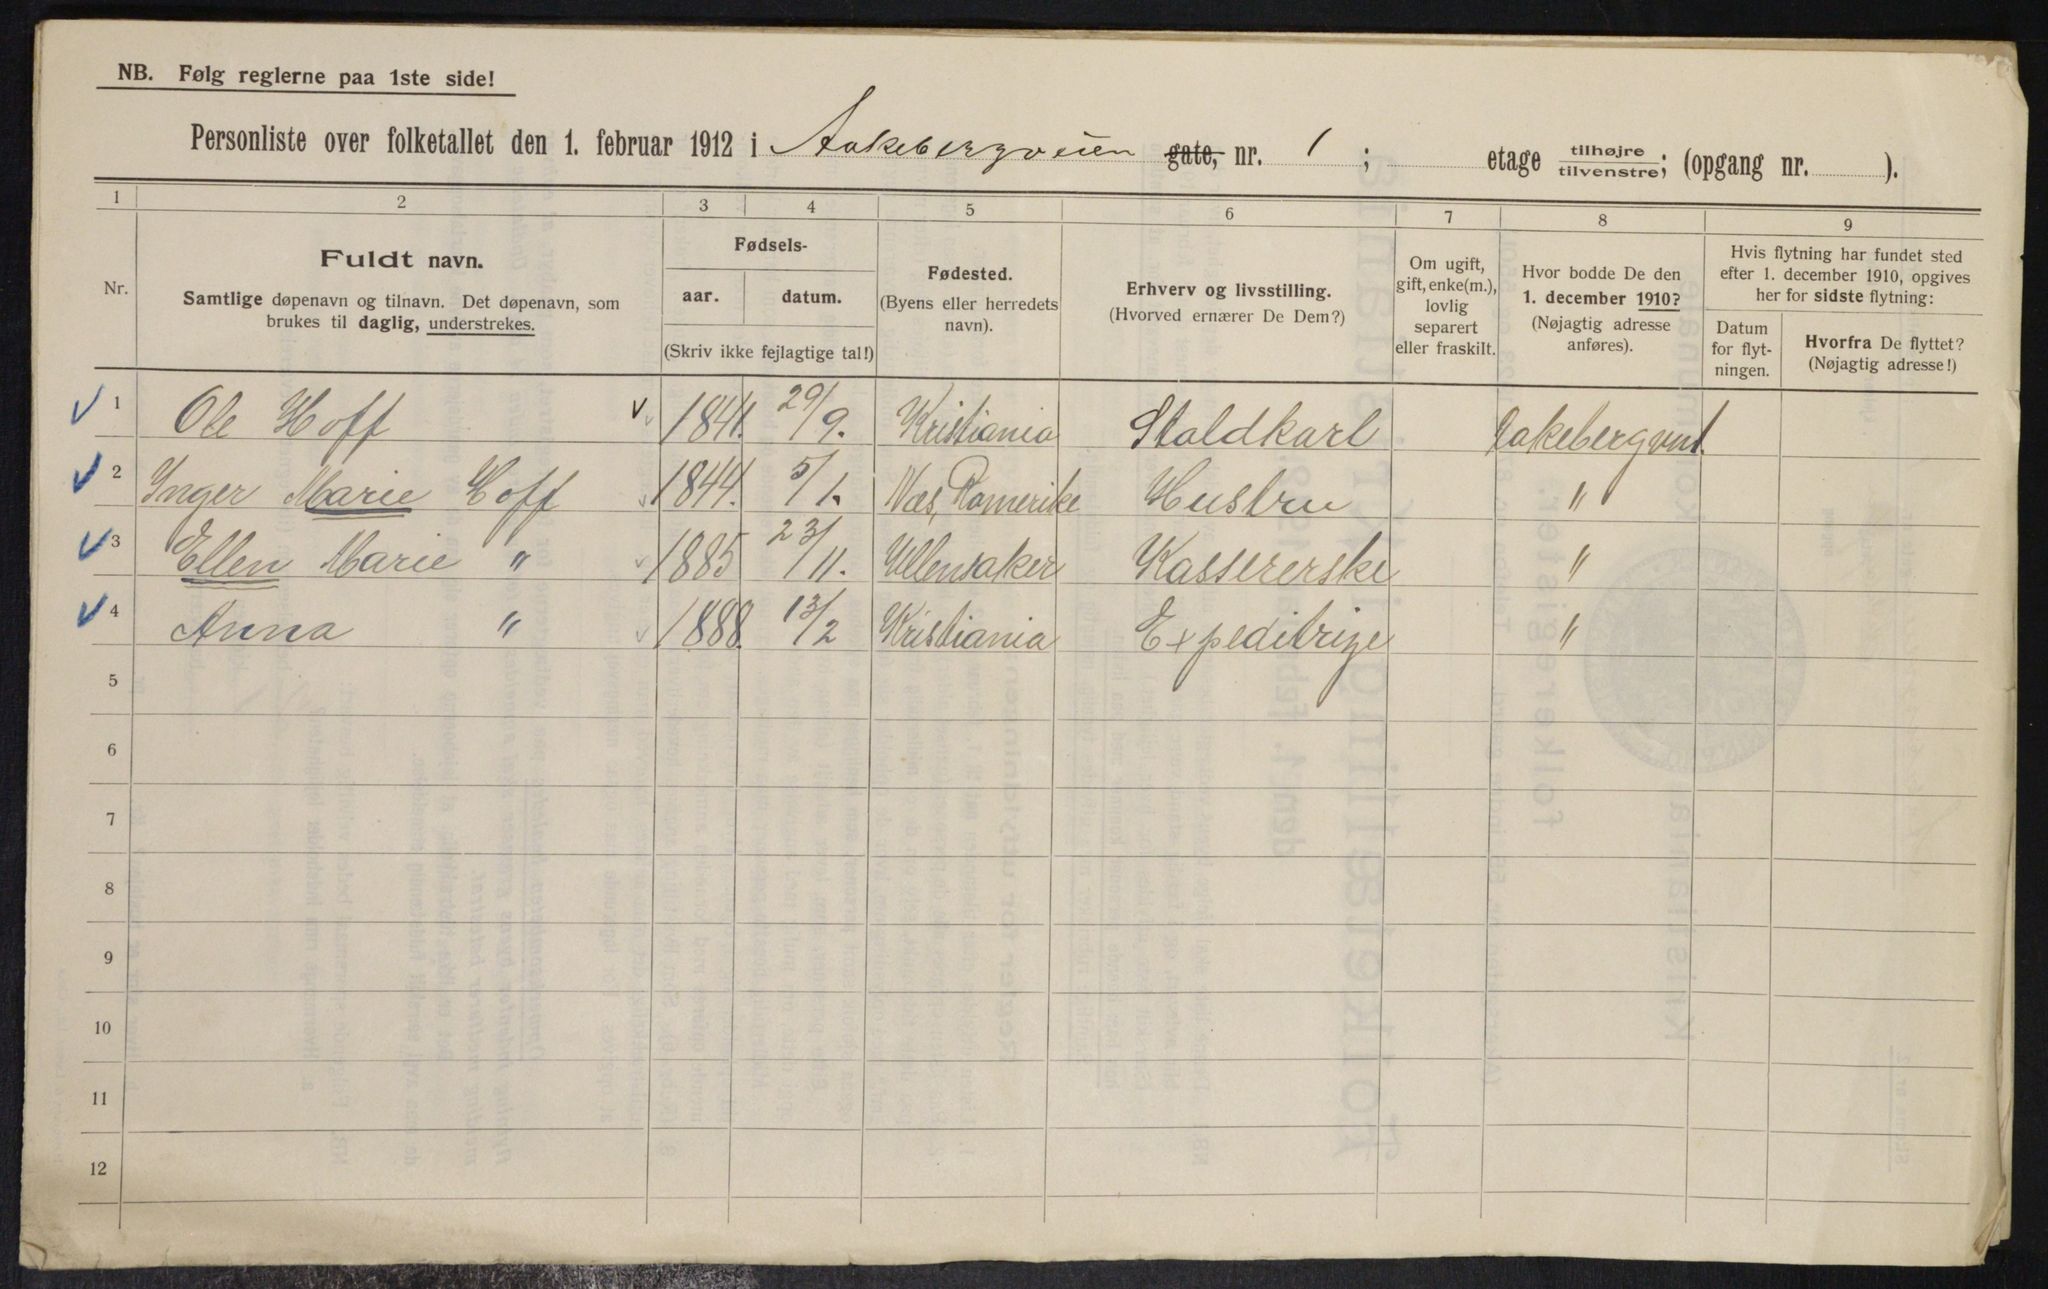 NB. Følg reglerne paa 1ste side!
Personliste over folketallet den 1. februar 1912 i Aakebergveien gate, nr. 1; etage tilhøjre tilvenstre; (opgang nr. ).
1 2 3 4 5 6 7 8 9
Nr.
Fuldt navn.
Samtlige døpenavn og tilnavn. Det døpenavn, som
brukes til daglig, understrekes.
Fødsels-
aar. datum.
(Skriv ikke fejlagtige tal!)
Fødested.
(Byens eller herredets
navn).
Erhverv og livsstilling.
(Hvorved ernærer De Dem?)
Om ugift,
gift, enke(m.),
lovlig
separert
eller fraskilt.
Hvor bodde De den
1. december 1910?
(Nøjagtig adresse
anføres).
Hvis flytning har fundet sted
efter 1. december 1910, opgives
her for sidste flytning:
Datum
for flyt-
ningen.
Hvorfra De flyttet?
(Nøjagtig adresse!)
1 Ole Hoff 1841. 29/9. Kristiania Staldkarl Aakebergvn 1.
2 Inger Marie Hoff 1844. 5/1. Næs, Romerike Hustru "
3 Ellen Marie " 1885 23/11. Ullensaker Kassererske "
4 Anna " 1888. 13/2 Kristiania Expeditrise "
5
6
7
8
9
10
11
12